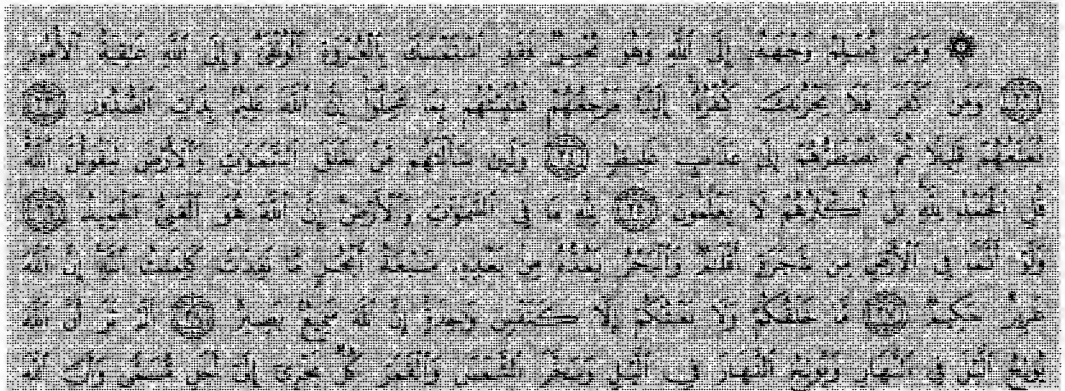 ۞ ومن يسلم وجهه إلى الله وهو محسن فقد استمسك بالعروة الوثقى وإلى الله عاقبة الأمور
٢٢ ومن كفر فلا يحزنك كفره إلينا مرجعهم فننبئهم بما عملوا إن الله عليم بذات الصدور ٢٣
نمتعهم قليلا ثم نضطرهم إلى عذاب غليظ ٢٤ ولئن سألتهم من خلق السموات والأرض ليقولن الله
قل الحمد لله بل أكثرهم لا يعلمون ٢٥ لله ما في السموات والأرض إن الله هو الغني الحميد ٢٦
ولو أنما في الأرض من شجرة أقلام والبحر يمده من بعده سبعة أبحر ما نفدت كلمات الله إن الله
عزيز حكيم ٢٧ ما خلقكم ولا بعثكم إلا كنفس واحدة إن الله سميع بصير ٢٨ ألم تر أن الله
يولج الليل في النهار ويولج النهار في الليل وسخر الشمس والقمر كل يجري إلى أجل مسمى وأن الله